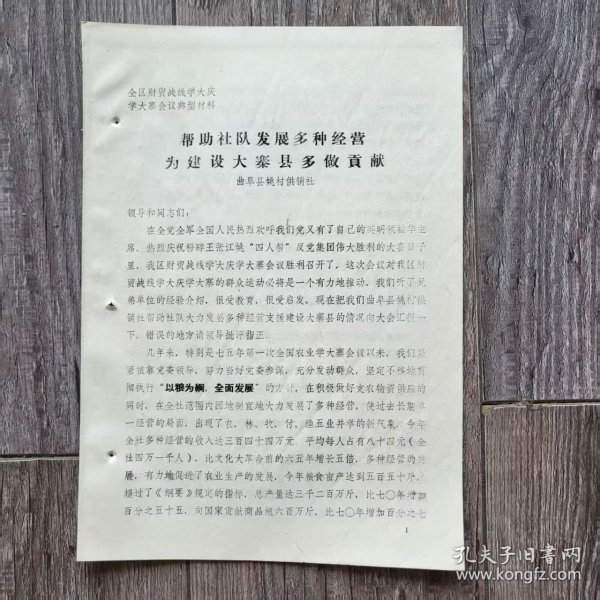 全区财贸战线学大庆
学大寨会议典型材料
帮助社队发展多种经营
为建设大寨县多做贡献
曲阜县姚村供销社
领导和同志们：
在全党全军全国人民热烈欢呼我们党又有了自己的英明领袖华主
席、热烈庆祝粉碎王张江姚“四人帮”反党集团伟大胜利的大喜日子
里，我区财贸战线学大庆学大寨会议胜利召开了，这次会议对我区财
贸战线学大庆学大寨的群众运动必将是一个有力地推动。我们听了兄
弟单位的经验介绍，很受教育，很受启发。现在把我们曲阜县姚村供
销社帮助社队大力发展多种经营支援建设大寨县的情况向大会汇报一
下，错误的地方请领导批评指正。
几年来，特别是七五年第一次全国农业学大寨会议以来，我们紧
紧依靠党委领导，努力当好党委参谋，充分发动群众，坚定不移地贯
彻执行“以粮为纲，全面发展”的方针，在积极做好支农物资供应的
同时，在全社范围内因地制宜地大力发展了多种经营，使过去长期单
一经营的局面，出现了农、林、牧、付、渔五业并举的新气象。今年
全社多种经营的收入达三百四十四万元，平均每人占有八十四元（全
社四万一千人），比文化大革命前的六五年增长五倍，多种经营的发
展，有力地促进了农业生产的发展，今年粮食亩产达到五百五十斤，
超过了《纲要》规定的指标，总产量达三千二百万斤，比七〇年增加
百分之五十五，向国家贡献商品粮六百万斤，比七〇年增加百分之七
1
孔夫子旧书网
www.kongfz.com